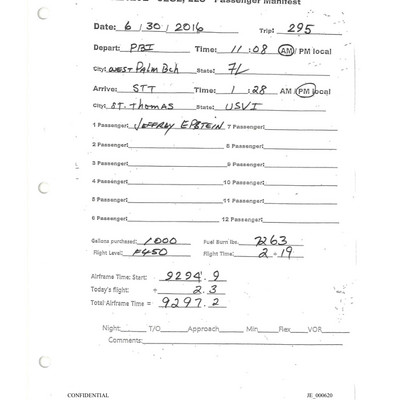 Passenger Manifest
Date: 6/30/2016 Trip: 295
Depart: PBI Time: 11:08 AM/PM local
City: West Palm Bch State: FL
Arrive: STT Time: 1:28 AM/PM local
City: St. Thomas State: USVI
1 Passenger: Jeffrey Epstein 7 Passenger:
2 Passenger: 8 Passenger:
3 Passenger: 9 Passenger:
4 Passenger: 10 Passenger:
5 Passenger: 11 Passenger:
6 Passenger: 12 Passenger:
Gallons purchased: 1000 Fuel Burn lbs. 7263
Flight Level: F450 Flight Time: 2-19
Airframe Time: Start: 9294.9
Today's flight: = 2.3
Total Airframe Time = 9297.2
Night: T/O Approach Min Flex VOR
Comments:
CONFIDENTIAL JE_000620